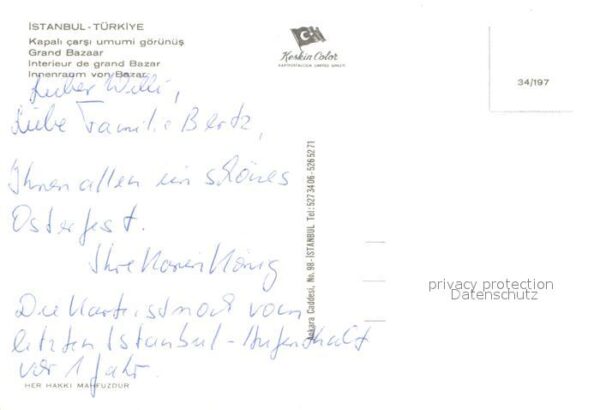 İSTANBUL - TÜRKİYE
Kapalı çarşı umumi görünüş
Grand Bazaar
Interieur de grand Bazar
Innenraum von Bazar
Keskin Color
34/197
Lieber Willi,
Liebe Familie Bertz,
Ihnen allen ein schönes
Osterfest.
Ihre Karin König
Die Karte ist noch vom
letzten Istanbul-Aufenthalt
vor 1 Jahr.
HER HAKKI MAHFUZDUR
Ankara Caddesi, No. 98 - İSTANBUL Tel: 5273406 - 5265271
privacy protection
Datenschutz